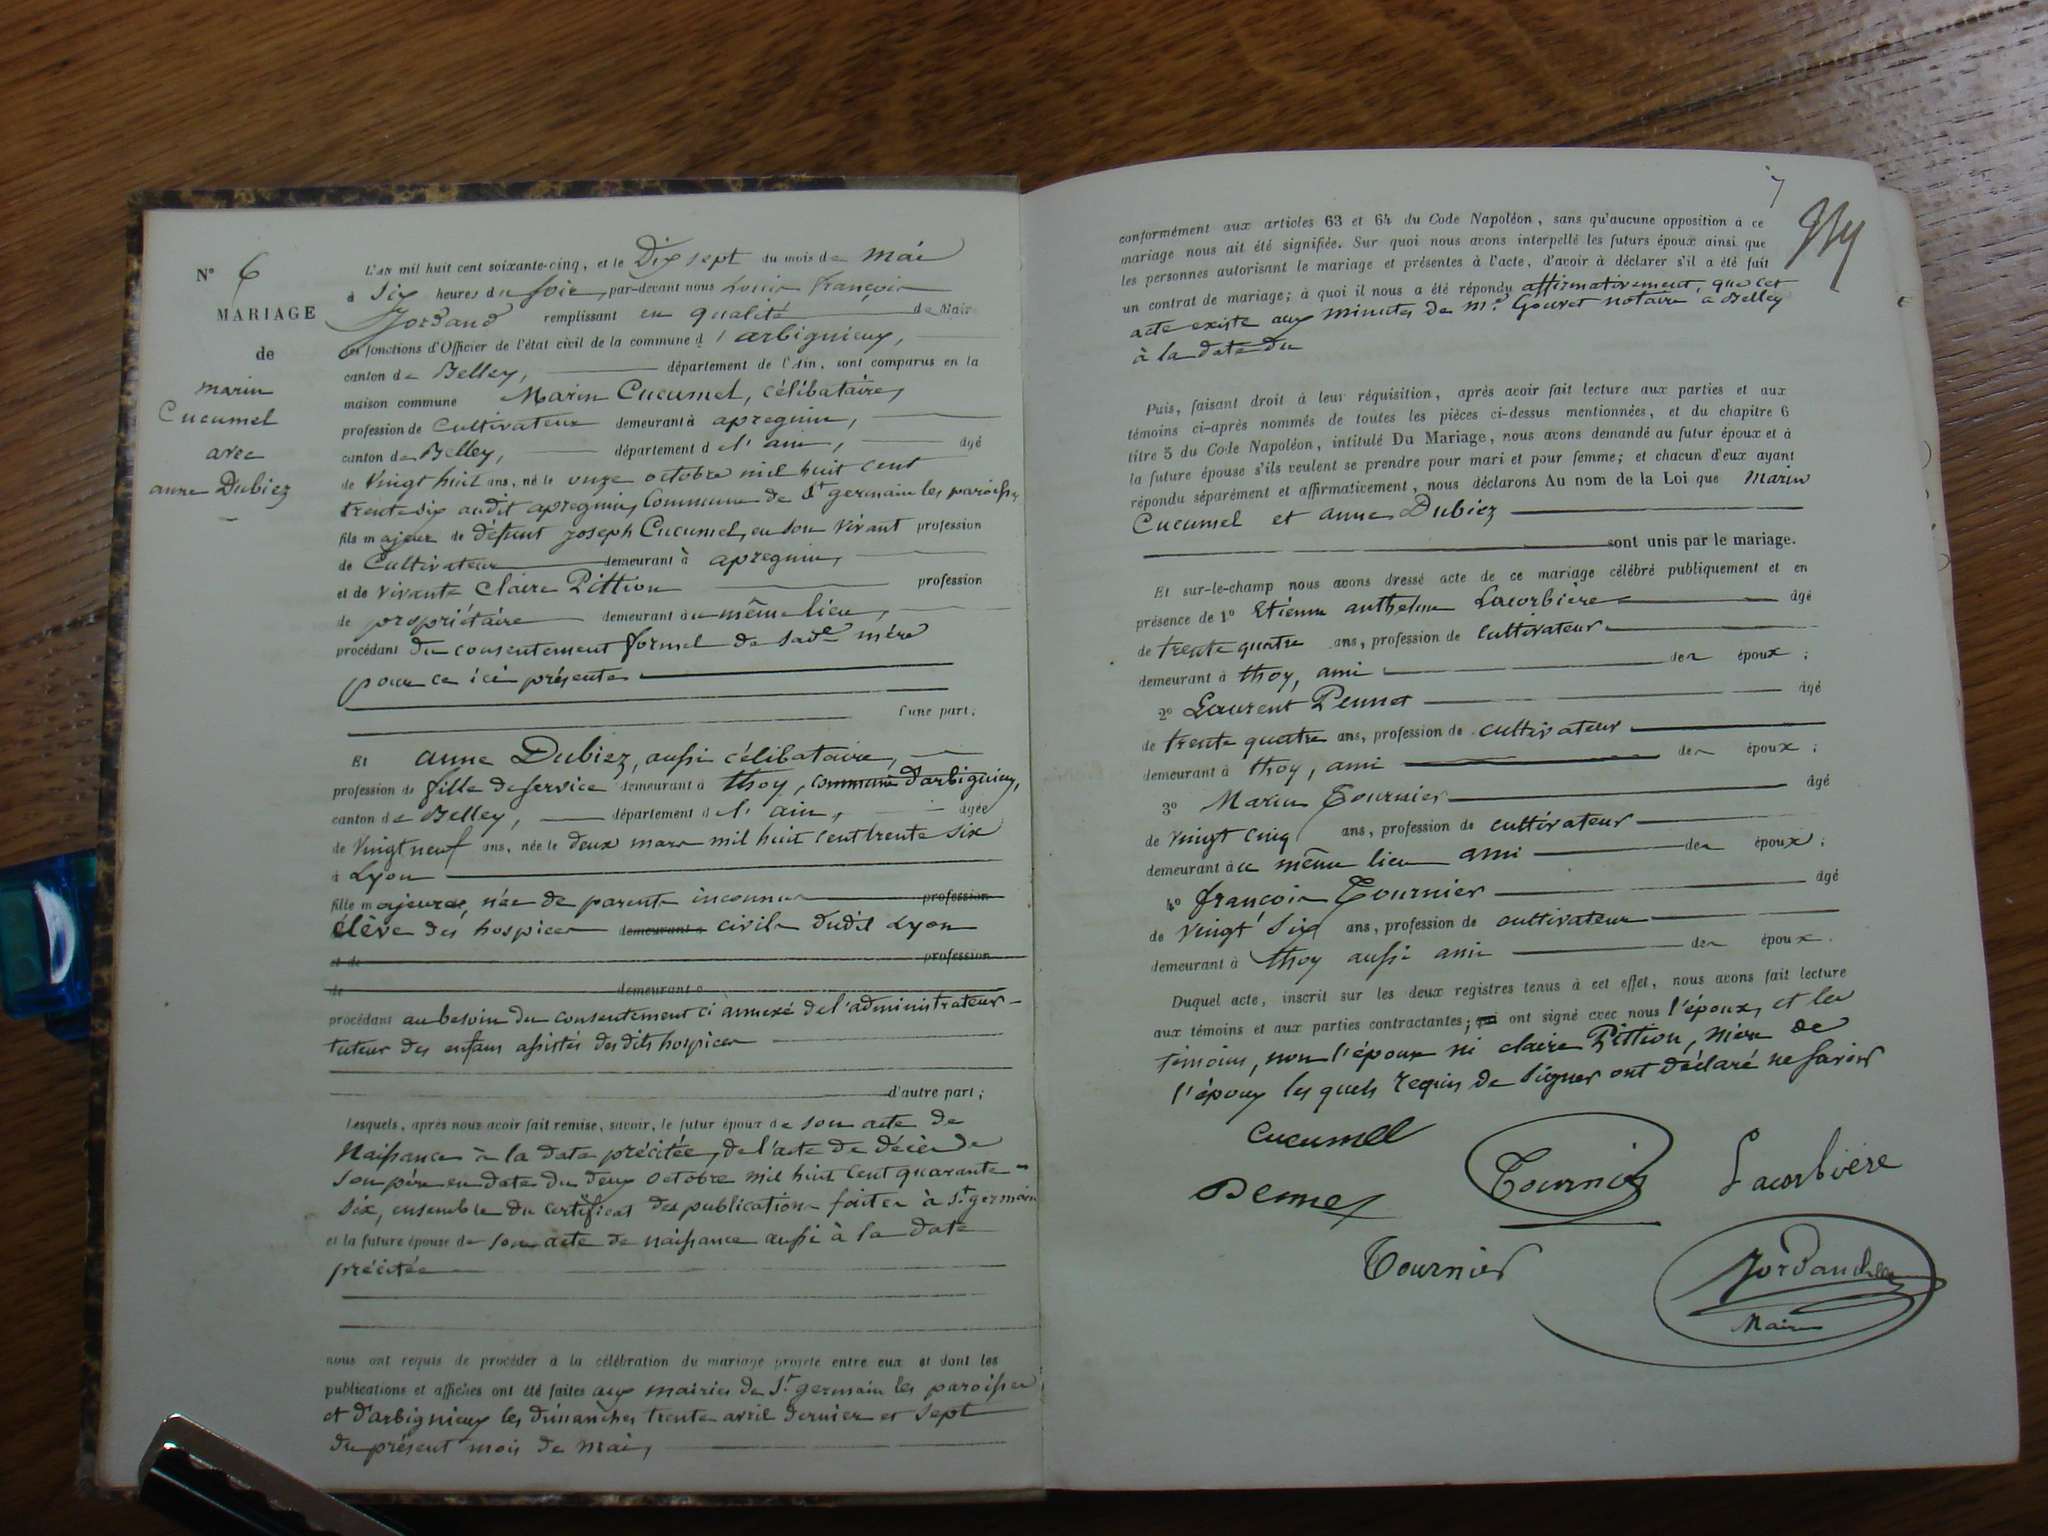 N° 6
MARIAGE
de
marin
Cucumel
avec
anne Dubiez
L'AN mil huit cent soixante-cinq, et le Dix sept du mois de mai
à Six heures du soir, par-devant nous Louis François
Jordand remplissant en qualité de Maire
les fonctions d'Officier de l'état civil de la commune d'arbignieux,
canton de Belley, département de l'Ain, sont comparus en la
maison commune Marin Cucumel, célibataire,
profession de Cultivateur demeurant à apregnin,
canton de Belley, département de l'ain, âgé
de vingt huit ans, né le onze octobre mil huit cent
trente six audit apregnin, Commune de St germain les paroisses
fils majeur de défunt joseph Cucumel, en son vivant profession
de Cultivateur demeurant à apregnin,
et de vivante Claire Pittion profession
de propriétaire demeurant au même lieu,
procédant du consentement formel de sade mère
pour ce ici présente
d'une part;
Et anne Dubiez, aussi célibataire,
profession de fille de service demeurant à thoy, commune d'arbignieux,
canton de Belley, département de l'ain, âgée
de vingt neuf ans, née le deux mars mil huit cent trente six
à Lyon
fille majeure, née de parents inconnus profession
élève des hospices demeurant à civils dudit Lyon
et de profession
de demeurant à
procédant au besoin du consentement ci annexé de l'administrateur-
tuteur des enfans assistés desdits hospices
d'autre part;
Lesquels, après nous avoir fait remise, savoir, le futur époux de son acte de
Naissance à la date précitée, de l'acte de décès de
son père en date du deux octobre mil huit cent quarante-
six, ensemble du certificat des publications faites à St germain
et la future épouse de son acte de naissance aussi à la date
précitée
nous ont requis de procéder à la célébration du mariage projeté entre eux et dont les
publications et affiches ont été faites aux mairies de St germain les paroisses
et d'arbignieux les dimanches trente avril dernier et sept
du présent mois de mai,
7
conformément aux articles 63 et 64 du Code Napoléon, sans qu'aucune opposition à ce
mariage nous ait été signifiée. Sur quoi nous avons interpellé les futurs époux ainsi que
les personnes autorisant le mariage et présentes à l'acte, d'avoir à déclarer s'il a été fait
un contrat de mariage; à quoi il nous a été répondu affirmativement, que cet
acte existe aux minutes de me Gouvet notaire à Belley
à la date du
Puis, faisant droit à leur réquisition, après avoir fait lecture aux parties et aux
témoins ci-après nommés de toutes les pièces ci-dessus mentionnées, et du chapitre 6
titre 5 du Code Napoléon, intitulé Du Mariage, nous avons demandé au futur époux et à
la future épouse s'ils veulent se prendre pour mari et pour femme; et chacun d'eux ayant
répondu séparément et affirmativement, nous déclarons Au nom de la Loi que Marin
Cucumel et anne Dubiez
sont unis par le mariage.
Et sur-le-champ nous avons dressé acte de ce mariage célébré publiquement et en
présence de 1° Etienne anthelme Lacorbière âgé
de trente quatre ans, profession de cultivateur
demeurant à thoy, ami des époux;
2° Laurent Pennet âgé
de trente quatre ans, profession de cultivateur
demeurant à thoy, ami des époux;
3° Marin Tournier âgé
de vingt cinq ans, profession de cultivateur
demeurant au même lieu ami des époux;
4° françois Tournier âgé
de vingt six ans, profession de cultivateur
demeurant à thoy aussi ami des époux.
Duquel acte, inscrit sur les deux registres tenus à cet effet, nous avons fait lecture
aux témoins et aux parties contractantes; qui ont signé avec nous l'époux, et les
témoins, non l'épouse ni claire Pittion, mère de
l'époux les quels requis de signer ont déclaré ne savoir
Cucumel
Tournier
Lacorbière
Pennet
Tournier
Jordand
Maire